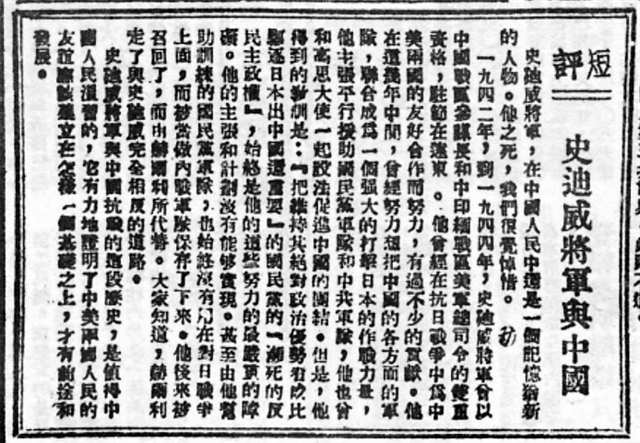 短評
史迪威將軍與中國
史迪威將軍，在中國人民中還是一個記憶猶新
的人物。他之死，我們很覺悼惜。
一九四二年，到一九四四年，史迪威將軍曾以
中國戰區參謀長和中印緬戰區美軍總司令的雙重
資格，駐節在遠東。他曾經在抗日戰爭中爲中
美兩國的友好合作而努力，有過不少的貢獻。他
在這幾年中間，曾經努力想把中國的各方面的軍
隊，聯合成爲一個强大的打擊日本的作戰力量，
他主張平行援助國民黨軍隊和中共軍隊，他也曾
和高思大使一起設法促進中國的團結。但是，他
得到的教訓是：『把維持其絕對政治優勢看成比
驅逐日本出中國還重要』的國民黨的『瀕死的反
民主政權』，始終是他的這些努力的最嚴重的障
礙。他的主張和計劃沒有能够實現。甚至由他幫
助訓練的國民黨軍隊，也始終沒有用在對日戰爭
上面，而被當做內戰軍隊保存了下來。他後來被
召回了，而由赫爾利所代替。大家知道，赫爾利
走了與史迪威完全相反的道路。
史迪威將軍與中國抗戰的這段歷史，是值得中
國人民溫習的，它有力地證明了中美兩國人民的
友誼應該建立在怎樣一個基礎之上，才有前途和
發展。